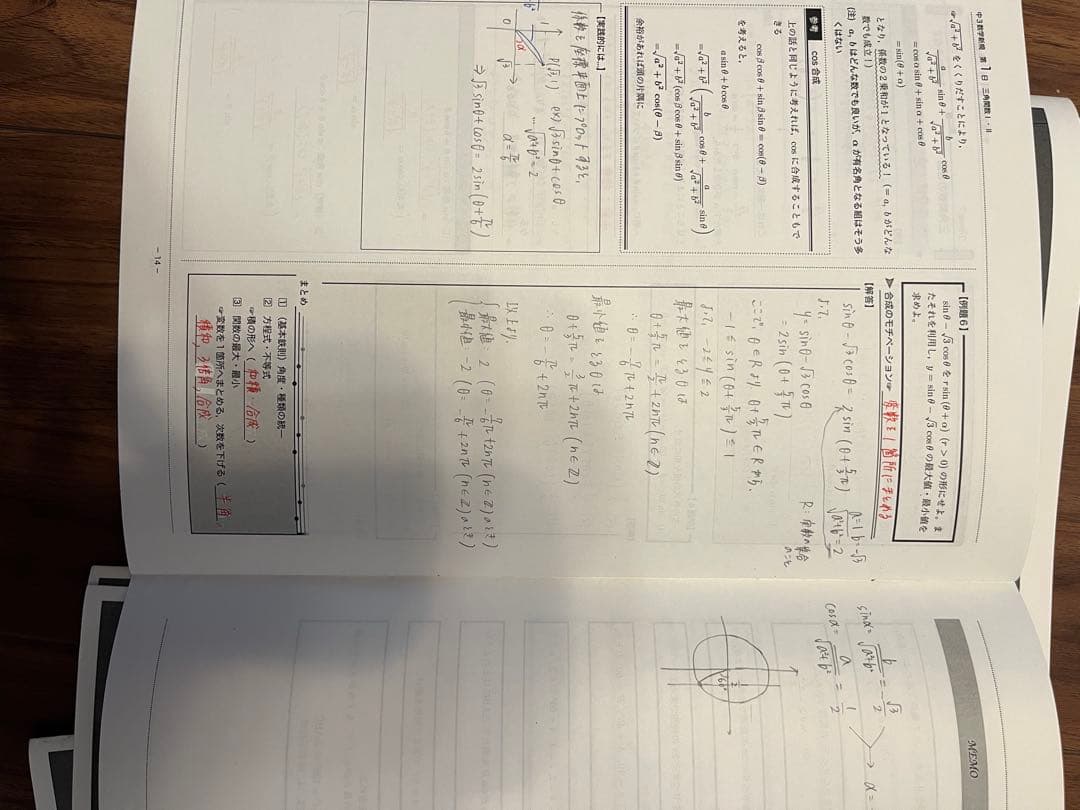 中3数学新規 第1日 三角関数Ⅰ・Ⅱ
☞√a²+b² をくくりだすことにより,
a/√a²+b² sinθ + b/√a²+b² cosθ
= cosα sinθ + sinα cosθ
= sin(θ+α)
となり, 係数の2乗和が1となっている! (= a, b がどんな
数でも成立!)
(注) a, b はどんな数でも良いが, α が有名角となる組はそう多
くはない
参考 cos 合成
上の話と同じように考えれば, cos に合成することもで
きる
cosβcosθ + sinβsinθ = cos(θ−β)
を考えると,
a sinθ + b cosθ
= √a²+b² ( b/√a²+b² cosθ + a/√a²+b² sinθ )
= √a²+b² (cosβcosθ + sinβsinθ)
= √a²+b² cos(θ−β)
余裕があれば頭の片隅に
【実践的には…】
係数を座標平面上にプロットすると,
P(√3, 1) ex) √3sinθ+cosθ
1
0 α √3
… √a²+b²=2
α=π/6
⇒ √3sinθ+cosθ = 2sin(θ+π/6)
− 14 −
【例題6】
sinθ − √3 cosθ を r sin(θ+α) (r > 0) の形にせよ。ま
たそれを利用し, y = sinθ − √3 cosθ の最大値・最小値を
求めよ。
➤ 合成のモチベーション☞ 変数を1箇所にまとめる
【解答】
a=1 b=-√3
sinθ-√3cosθ = 2sin(θ+5/3π) √a²+b²=2
よって,
y = sinθ-√3cosθ
= 2sin(θ+5/3π)
R: 実数の集合
のこと
ここで, θ∈Rより θ+5/3π∈Rから,
-1 ≦ sin(θ+5/3π) ≦ 1
よって, -2≦y≦2
最大値をとるθは
θ+5/3π = π/2+2nπ (n∈Z)
∴ θ = -7/6π+2nπ
最小値をとるθは
θ+5/3π = 3/2π+2nπ (n∈Z)
∴ θ = -π/6+2nπ
以上より,
最大値 2 (θ=-7/6π+2nπ (n∈Z)のとき)
最小値 -2 (θ=-π/6+2nπ (n∈Z)のとき)
まとめ
① (基本鉄則) 角度・種類の統一
② 方程式・不等式
☞積の形へ ( 和積・合成 )
③ 関数の最大・最小
☞変数を1箇所へまとめる, 次数を下げる ( 半角,
積和, 3倍角, 合成 )
MEMO
sinα = b/√a²+b² = -√3/2
cosα = a/√a²+b² = 1/2
→ α =
1/2
60°